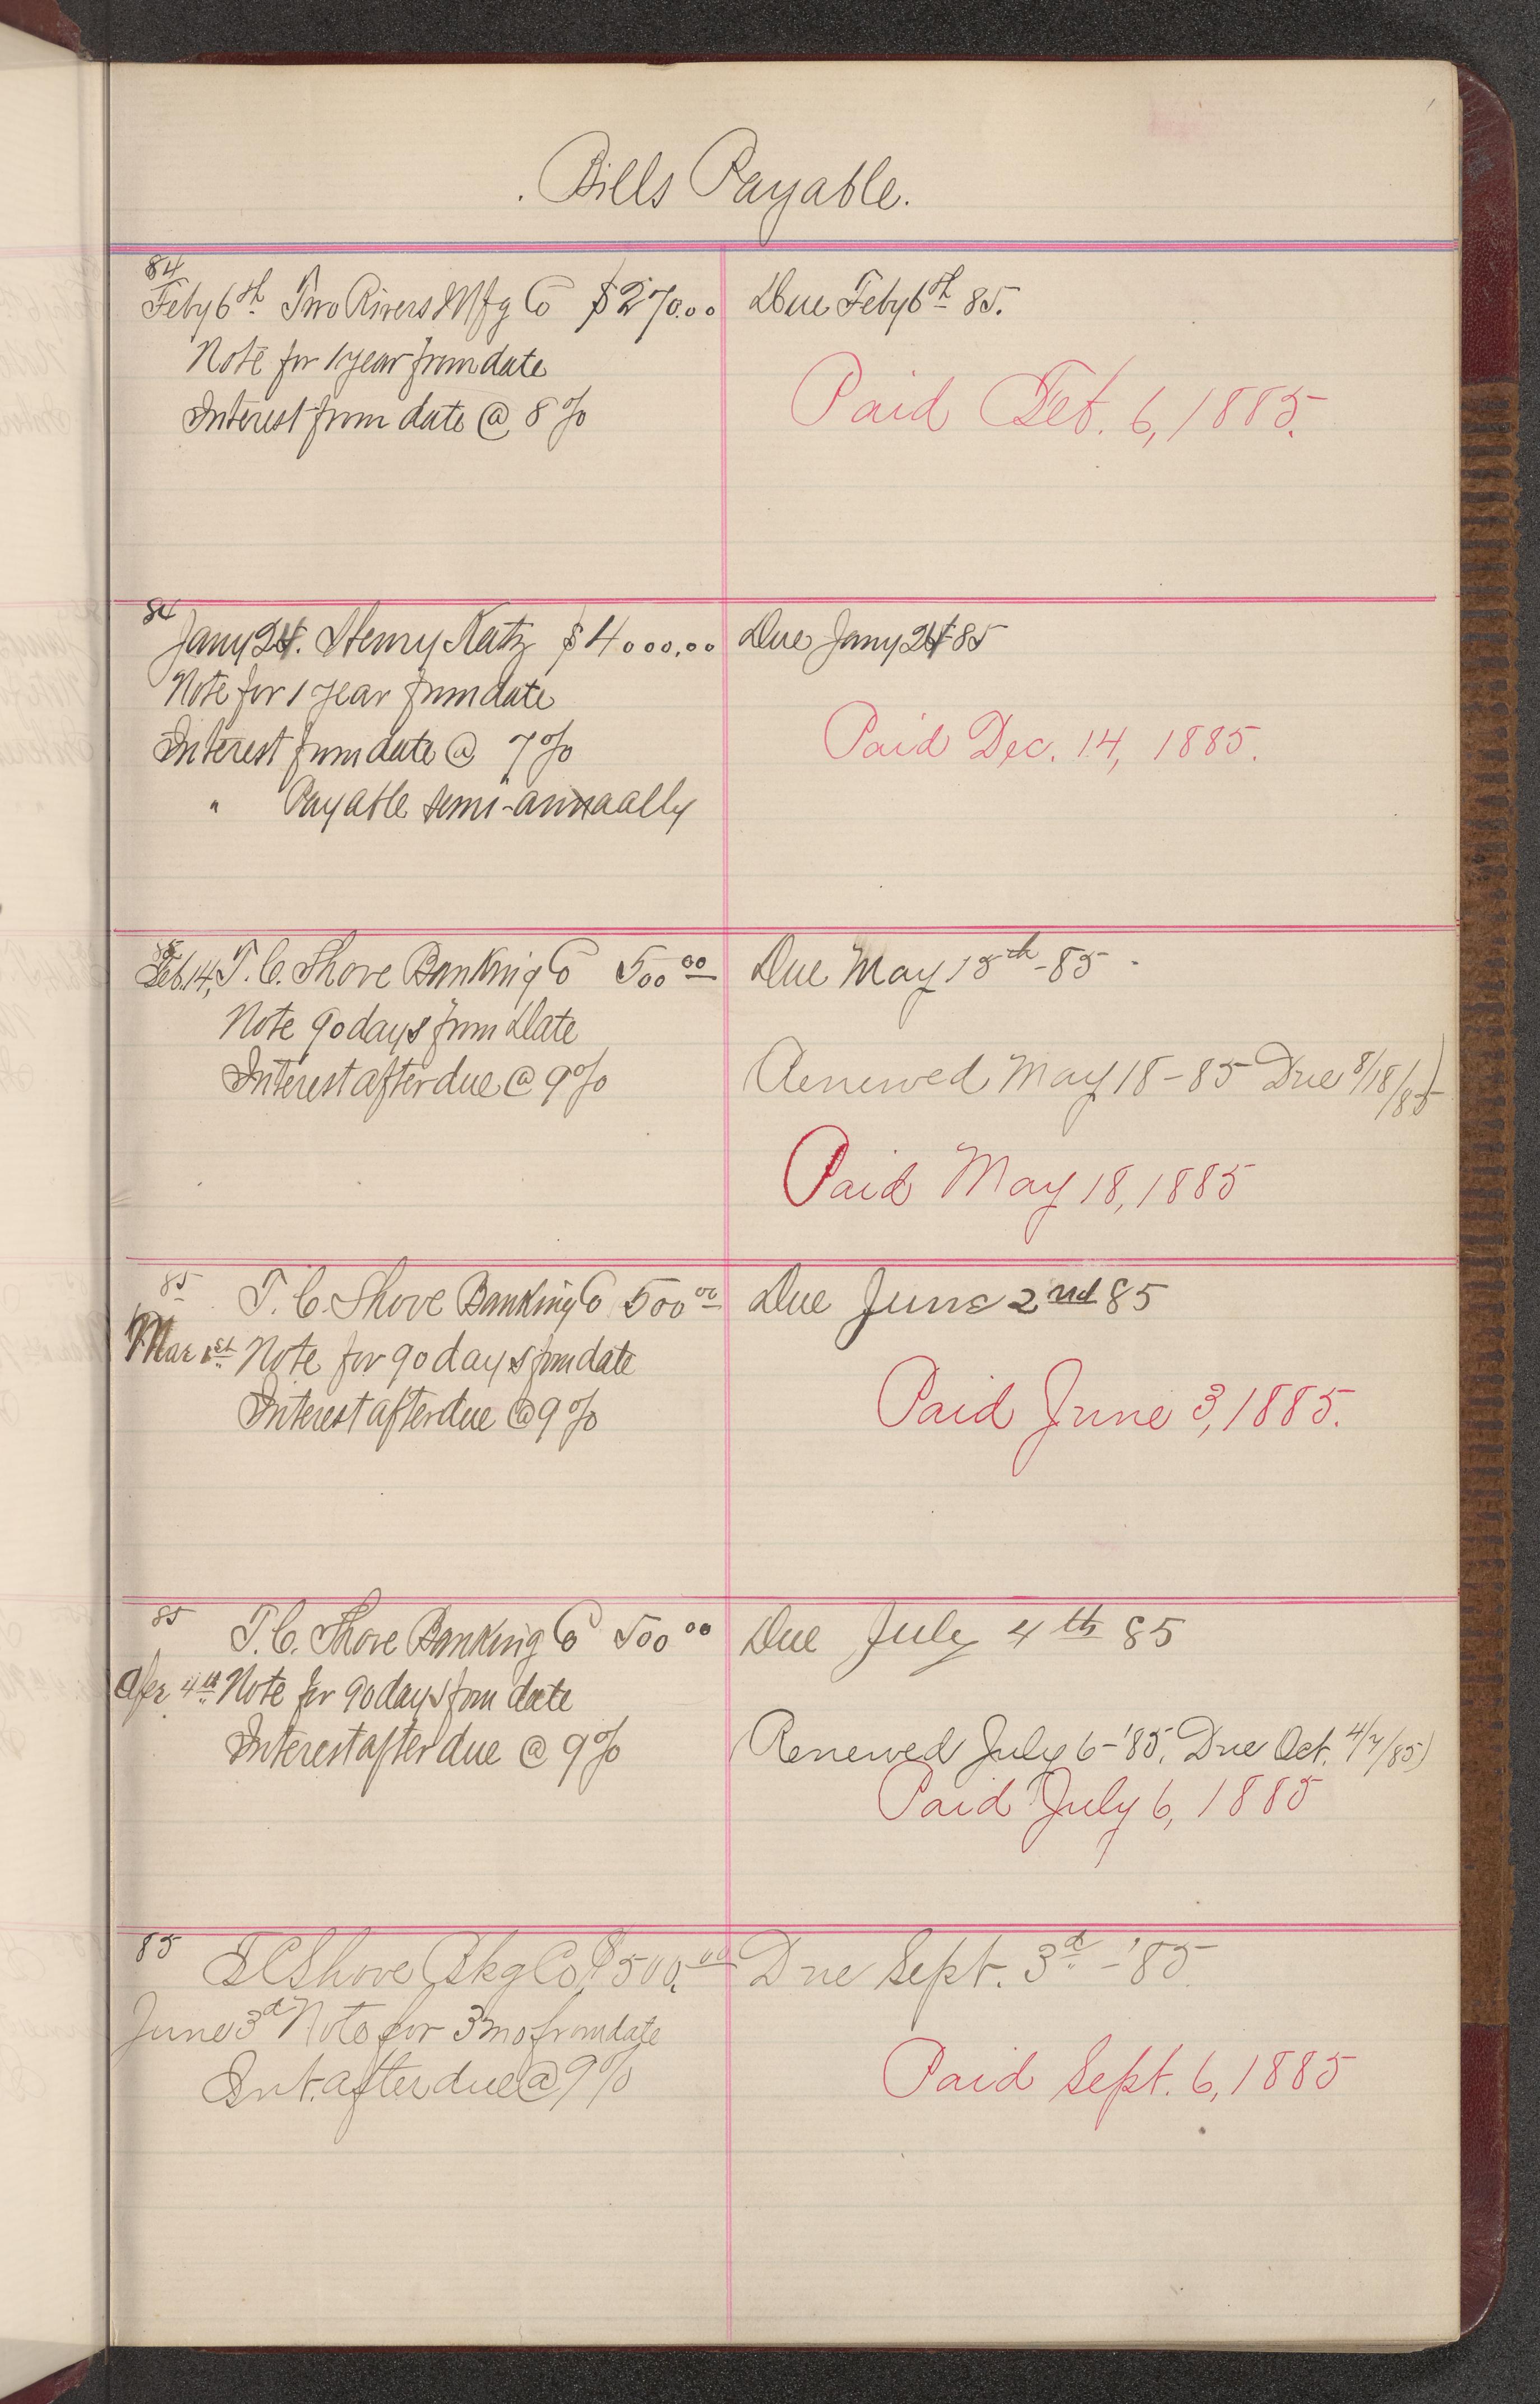 Bills Payable.
84
Feby 6th Two Rivers Mfg Co $270.00
Note for 1 year from date
Interest from date @ 8%
Due Feby 6th 85.
Paid Feb. 6, 1885.
84
Jany 24. Henry Katz $4000.00
Note for 1 year from date
Interest from date @ 7%
" Payable semi-annaally
Due Jany 24 85
Paid Dec. 14, 1885.
Feb. 14, T. C. Shove Banking Co 500 00
Note 90 days from Date
Interest after due @ 9%
Due May 15th - 85 -
(Renewed May 18 - 85 Due 8/18/85)
Paid May 18, 1885
85
T. C. Shove Banking Co 500 00
Mar 1st Note for 90 days from date
Interest after due @ 9%
Due June 2nd 85
Paid June 3, 1885.
85
T. C. Shove Banking Co 500 00
Apr 4th Note for 90 days from date
Interest after due @ 9%
Due July 4th 85
(Renewed July 6 - '85. Due Oct. 4/7/85)
Paid July 6, 1885
85
T C Shove Bkg Co $500.00
June 3d Note for 3 mo from date
Int. after due @ 9%
Due Sept. 3d - '85
Paid Sept. 6, 1885